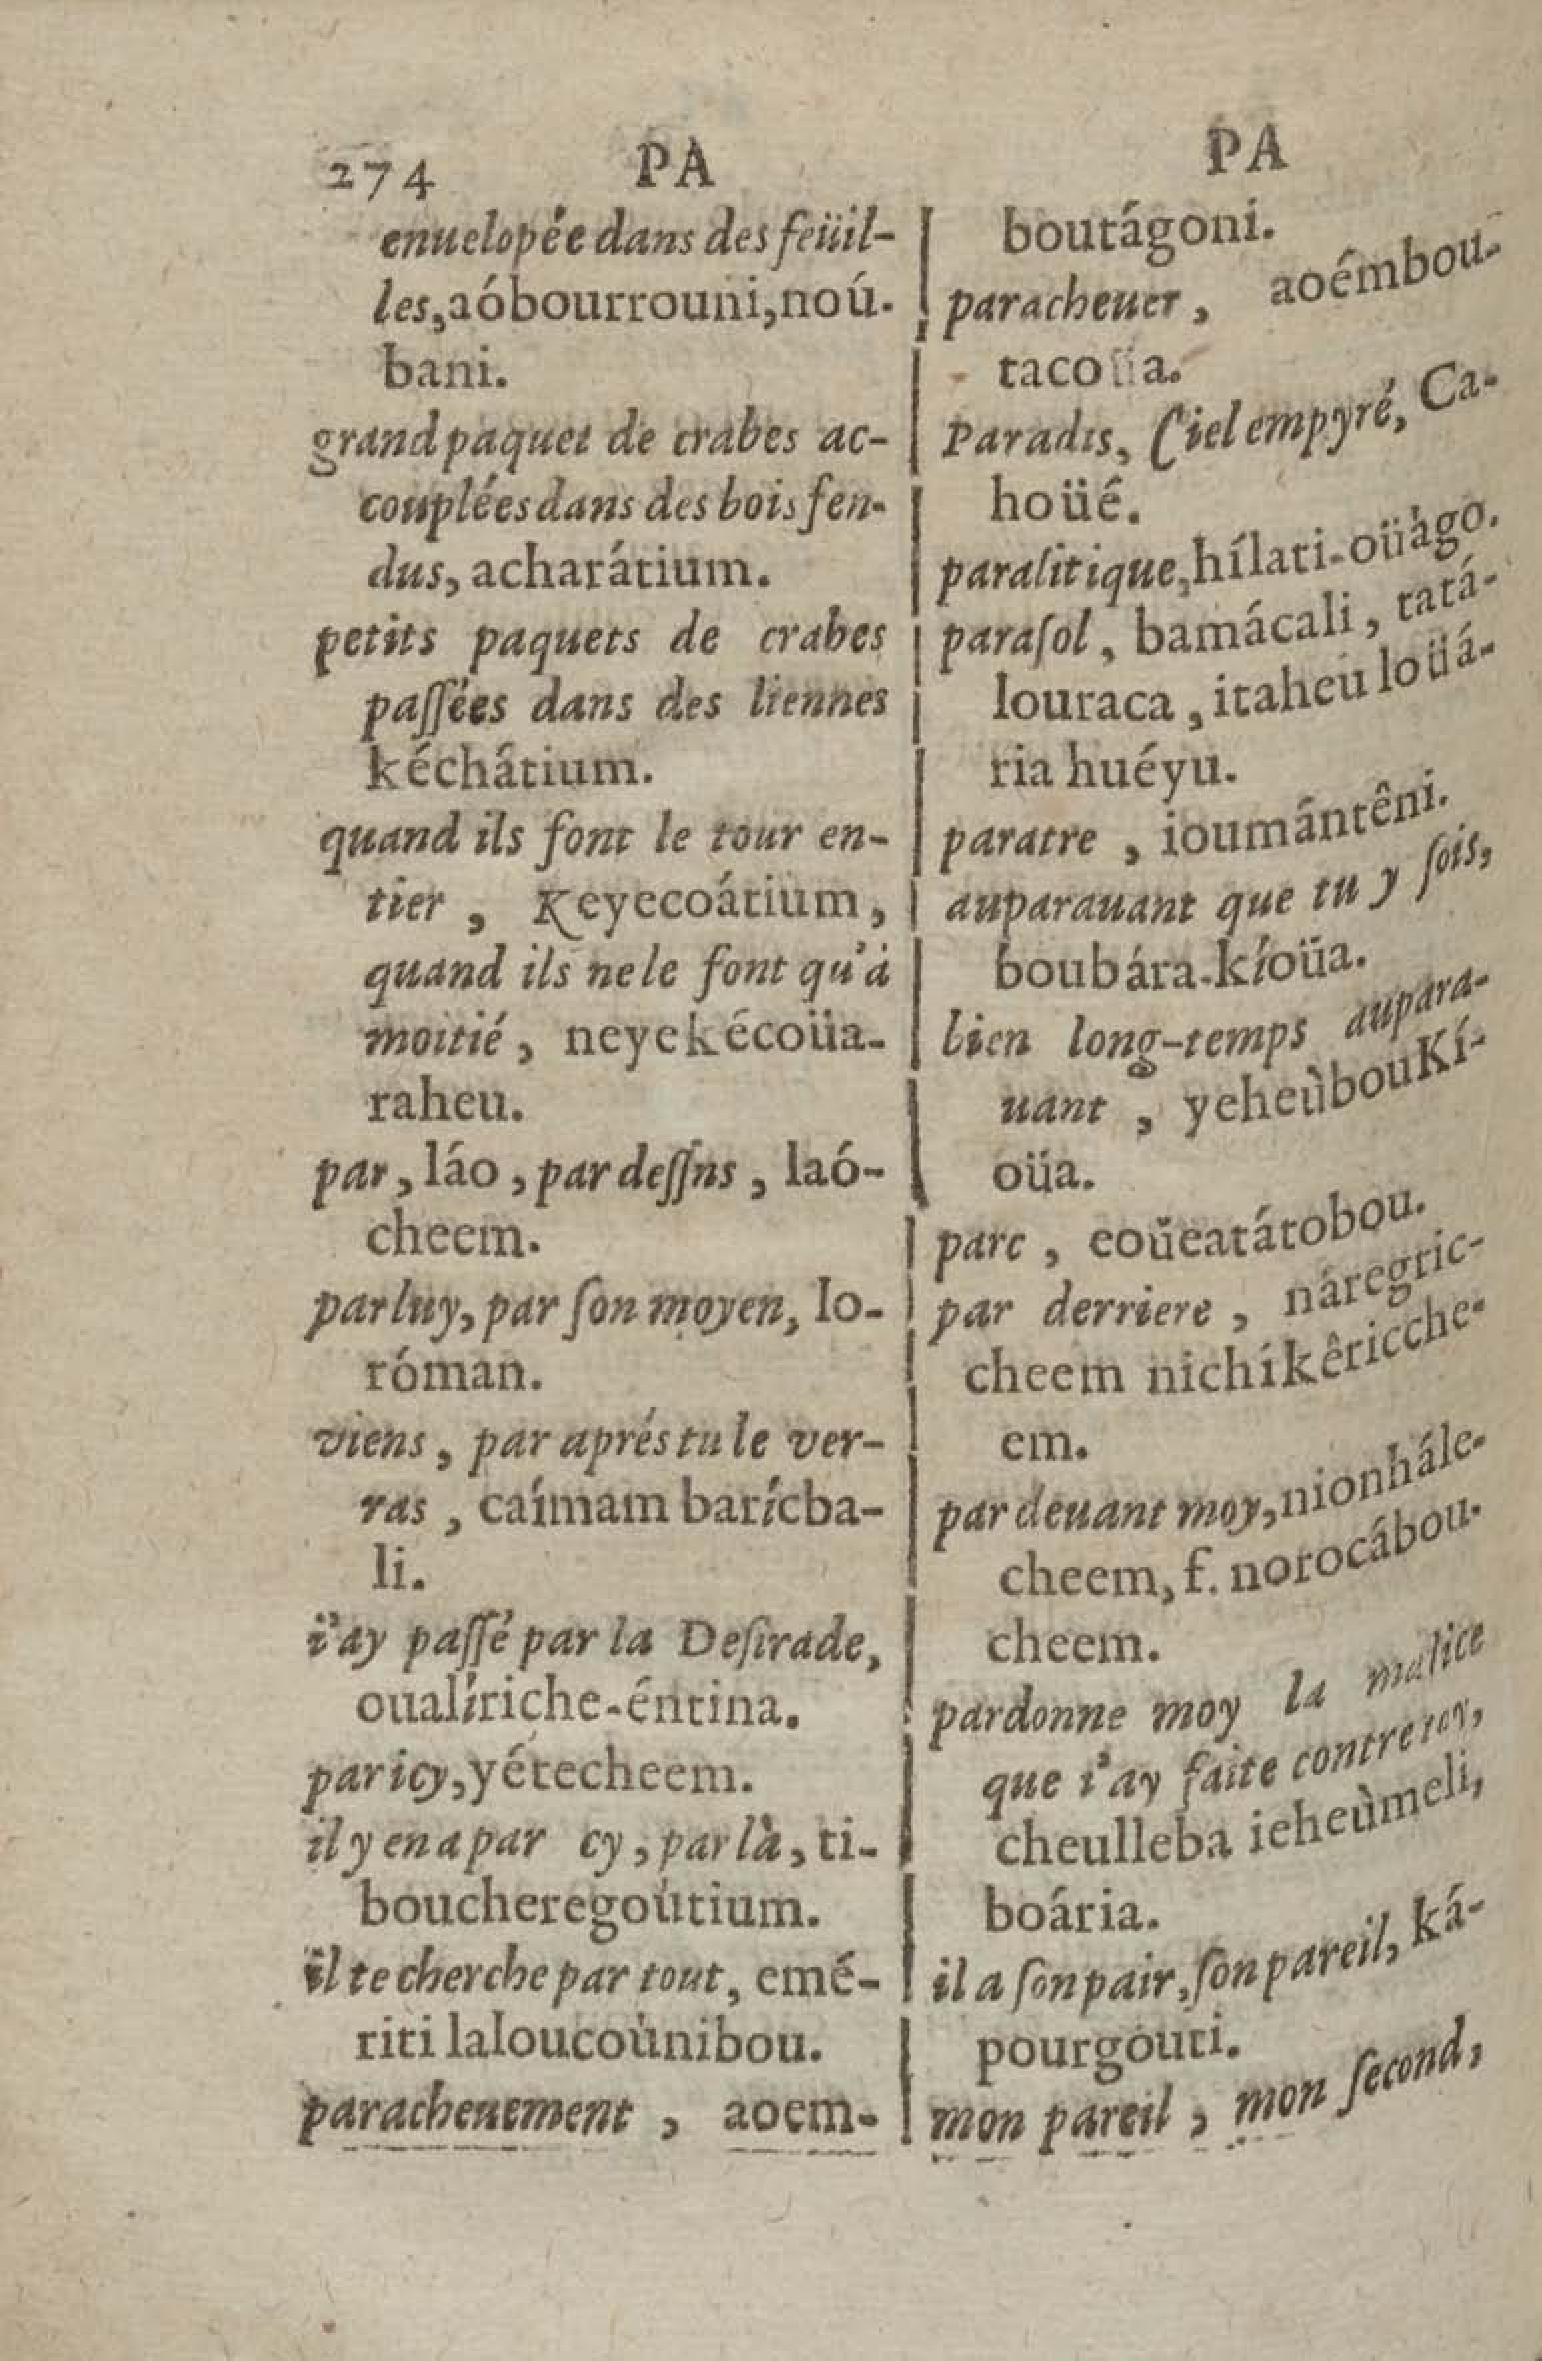 274 PA PA
enuelopée dans des feüil-
les, aóbourrouni, noú-
bani.
grand paquet de crabes ac-
couplées dans des bois fen-
dus, acharátium.
petits paquets de crabes
paſſées dans des liennes
kéchâtium.
quand ils font le tour en-
tier, Keyecoátium,
quand ils ne le font qu'à
moitié, neyekécoüa-
raheu.
par, láo, par deſſns, laó-
cheem.
par luy, par ſon moyen, lo-
róman.
viens, par aprés tu le ver-
ras, caímam barícba-
li.
i'ay paſſé par la Deſirade,
oualíriche-éntina.
par icy, yétecheem.
il y en a par cy, par là, ti-
boucheregoùtium.
il te cherche par tout, emé-
riti laloucoùnibou.
paracheuement, aoem-
boutágoni.
paracheuer, aoêmbou-
tacoüa.
Paradis, Ciel empyré, Ca-
hoüé.
paralitique, hílati-oüàgo.
paraſol, bamácali, tatá-
louraca, itaheu loüá-
ria huéyu.
paratre, ioumântêni.
auparauant que tu y ſois,
boubára-kíoüa.
bien long-temps aupara-
uant, yeheùbouKí-
oüa.
parc, eoŭeatátobou.
par derriere, náregric-
cheem nichíkêricche-
em.
par deuant moy, nionhále-
cheem, f. norocábou-
cheem.
pardonne moy la malice
que i'ay faite contre toy,
cheulleba ieheùmeli,
boária.
il a ſon pair, ſon pareil, ká-
pourgouti.
mon pareil, mon ſecond,